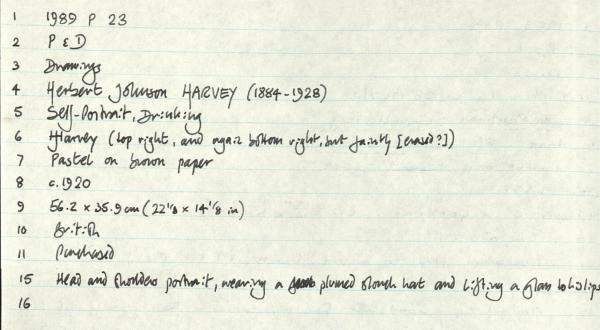 1 1989 P 23
2 P & D
3 Drawings
4 Herbert Johnson HARVEY (1884-1928)
5 Self-Portrait, Drinking
6 Harvey (top right, and again bottom right, but faintly [erased?])
7 Pastel on brown paper
8 c.1920
9 56.2 x 35.9 cm (22 1/8 x 14 1/8 in)
10 British
11 Purchased
15 Head and shoulders portrait, wearing a plumed slouch hat and lifting a glass to his lips
16